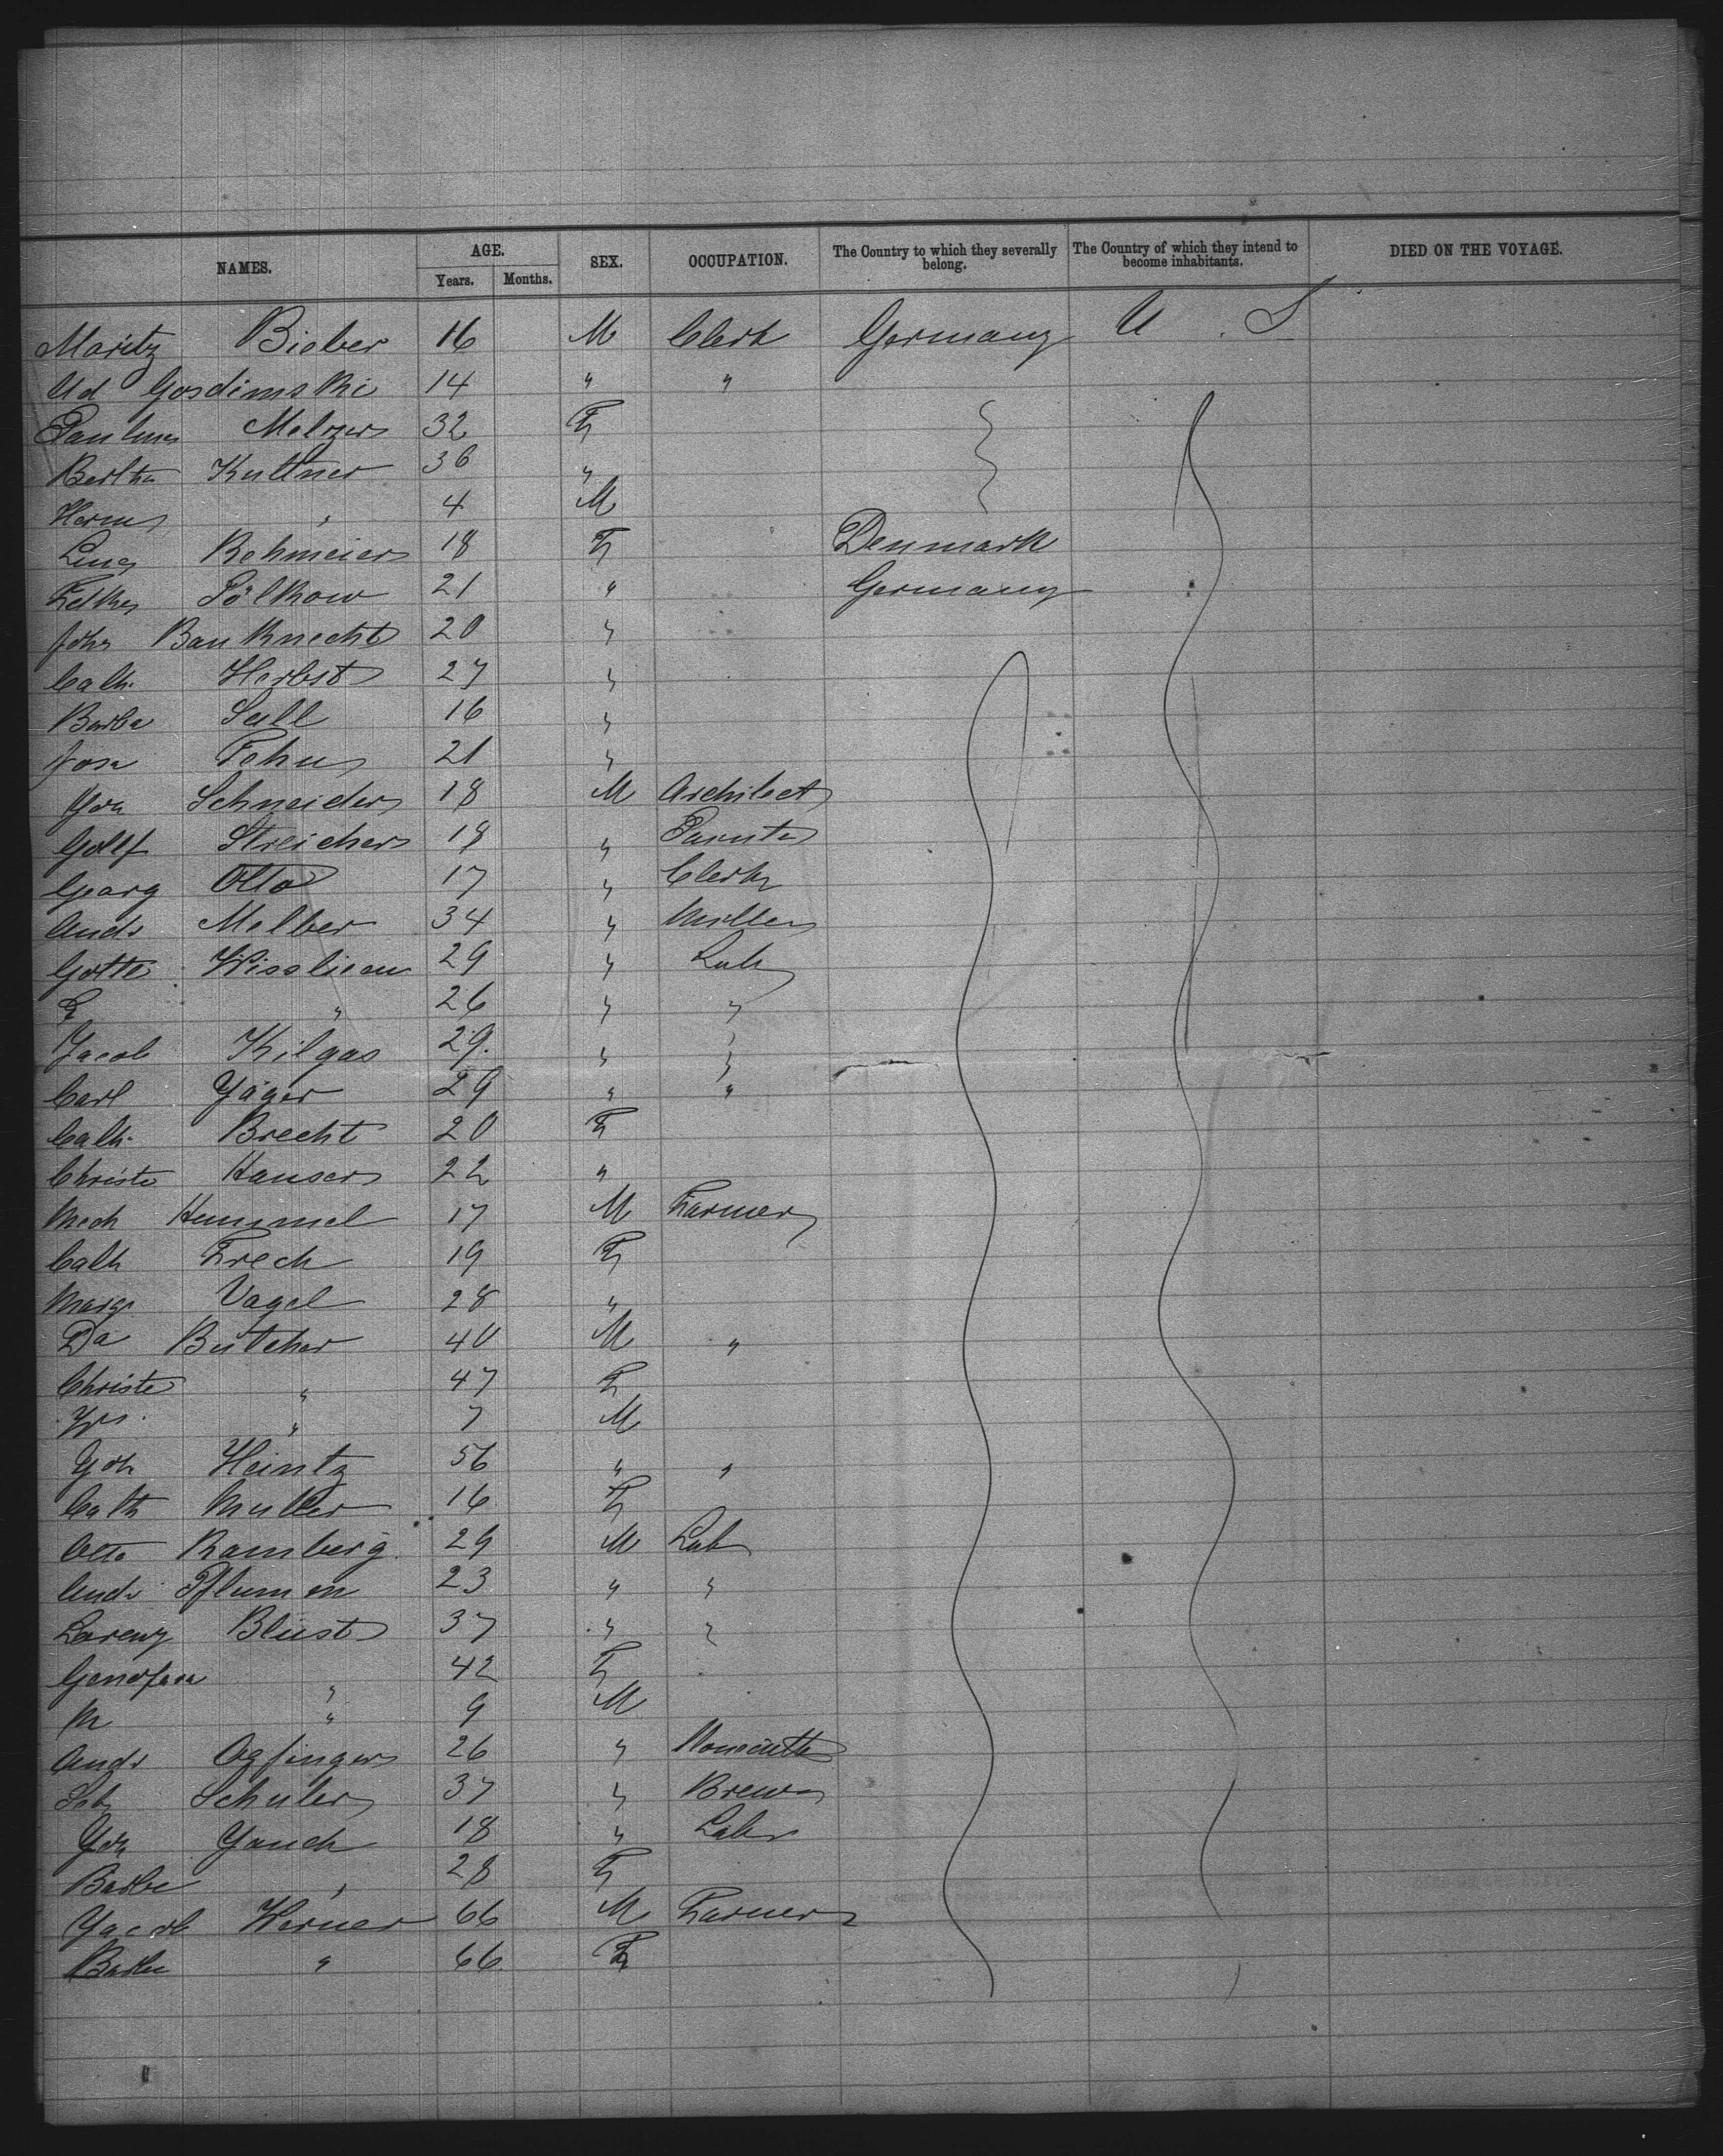 NAMES. AGE. SEX. OCCUPATION. The Country to which they severally belong. The Country of which they intend to become inhabitants. DIED ON THE VOYAGE.
Years. Months.
Moritz Bieber 16 M Clerk Germany U . S
Ud Gosdimski 14 " "
Melzer 32 F
Bertha Kuttner 36 "
Herm " 4 M
Lina Rehmeier 18 F Denmark
Sölkow 21 " Germany
Joha Bauknecht 20 "
Cath. Herbst 27 "
Barba Sall 16 "
Josa 21 "
Joh Schneider 18 M Architect
Streicher 18 "
Georg Otto 17 " Clerk
Andr Melber 34 " Miller
Gottli 29 " Lab
E " 26 " "
Jacob Kilgas 29. " "
Carl Jäger 29 " "
Cath. Brecht 20 F
Christe Hauser 22 "
Mich Hummel 17 M Farmer
Cath Frech 19 F
Marg. Vogel 28 "
Da Butcher 40 M "
Christe " 47 F
" 7 M
Joh Heintz 56 " "
Cath Muller 16 F
Otto Ramberg. 29 M Lab
Andr Pflumm 23 " "
Lorenz Blust 37 " "
Genofava " 42 F
M " 9 M
Andr 26 "
Seb Schuler 37 " Brewer
Joh Jauch 18 " Labr
Barbe " 28 F
Jacob Werner 66 M Farmer
Barbe " 66 F